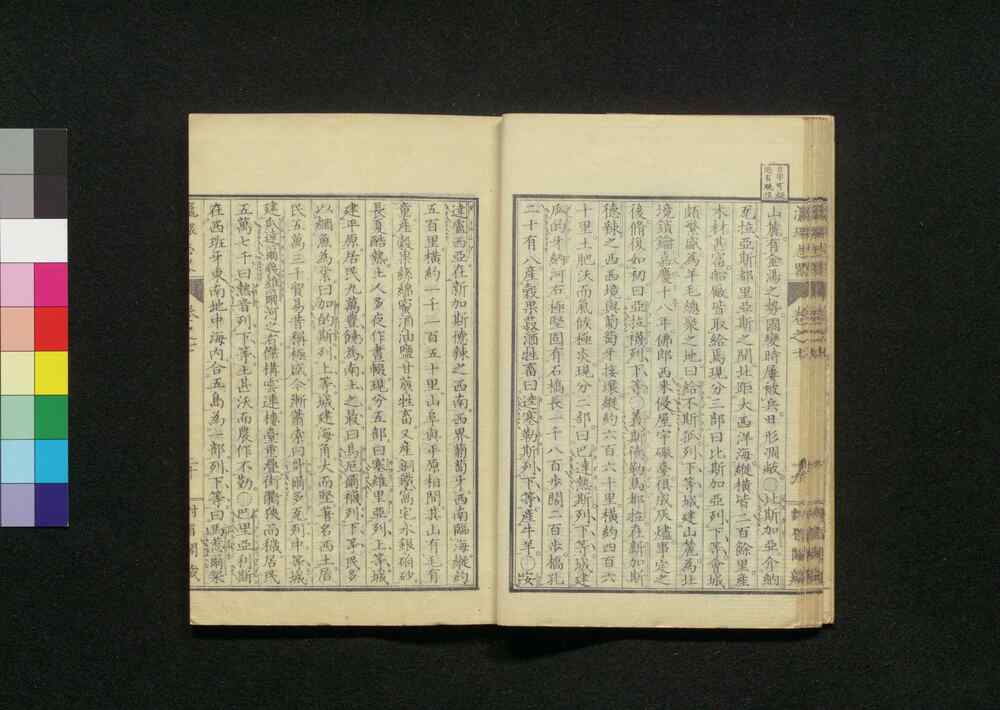 山麓有金湯之勢國變時屢被兵毋形凋敝○比斯加亞介納
瓦拉亞斯都里亞斯之間北距大西洋海縱橫皆二百餘里產
木材甚富船廠皆取給焉現分三部曰比斯加亞列下等會城
頗繁盛為羊毛總聚之地曰給不斯孤列下等城建山麓為北
境鎖鑰嘉慶十八年佛郎西來侵屋宇礮臺俱成灰燼事定之
後脩復如初曰亞拉襪列下等○義斯德勒馬都拉在新加斯
德辣之西西境與葡萄牙接壤縱約六百六十里橫約四百六
十里土肥沃而氣候極炎現分二部曰巴達熱斯列下等城建
瓜的牙納河右極堅固有石橋長一千八百步闊二百步橋孔
二十有八產穀果蔬酒牲畜曰達塞勒斯列下等產牛羊○安
達盧西亞在新加斯德辣之西南西界葡萄牙西南臨海縱約
五百里橫約一千二百五十里山阜與平原相間其山有毛有
童產穀果絲綿蜜酒油鹽甘蔗牲畜又產銅鐵窩宅水銀硇砂
長夏酷熱土人多夜作晝寢現分五部曰塞維里亞列上等城
建平原居民九萬豐饒為南土之最曰烏厄爾襪列下等民多
以網魚為業曰加的斯列上等城建海角大而堅著名西土居
民五萬三千貿易昔稱極盛今漸蕭索曰哥爾多瓦列中等城
建瓜達爾幾維爾河之右傑構雲連樓臺重疊街衢陝而穢居民
五萬七千曰熱音列下等土甚沃而農作不勤○巴里亞利斯
在西班牙東南地中海內合五島為一部列下等曰馬惹爾架